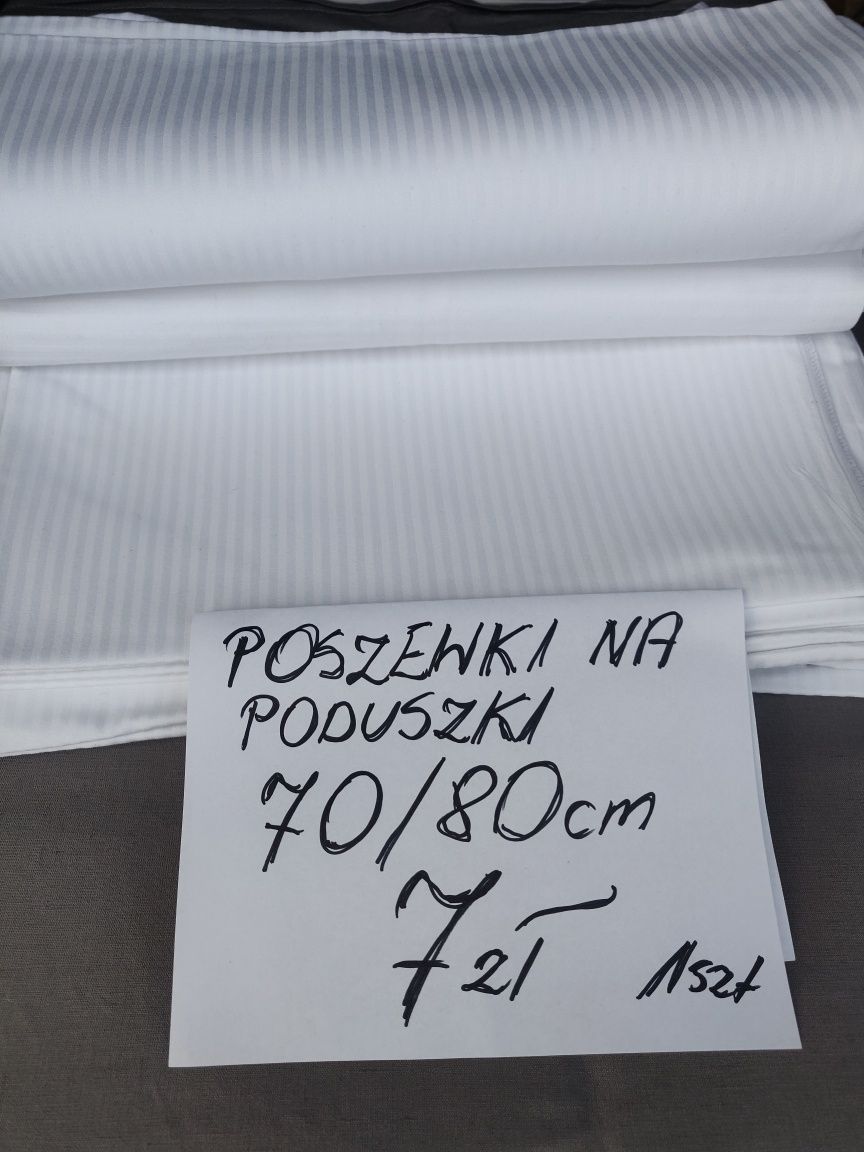 POSZEWKI NA
PODUSZKI
70/80cm
7 zł 1szt